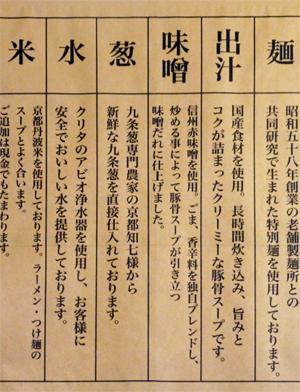 麺
昭和五十八年創業の老舗製麺所との
共同研究で生まれた特別麺を使用しております。
出汁
国産食材を使用。長時間炊き込み、旨みと
コクが詰まったクリーミーな豚骨スープです。
味噌
信州赤味噌を使用。ごま、香辛料を独自ブレンドし、
炒める事によって豚骨スープが引き立つ
味噌だれに仕上げました。
葱
九条葱専門農家の京都知七様から
新鮮な九条葱を直接仕入れております。
水
クリタのアビオ浄水器を使用し、お客様に
安全でおいしい水を提供しております。
米
京都丹波米を使用しております。ラーメン・つけ麺の
スープとよく合います。
ご追加は現金でもたまわります。